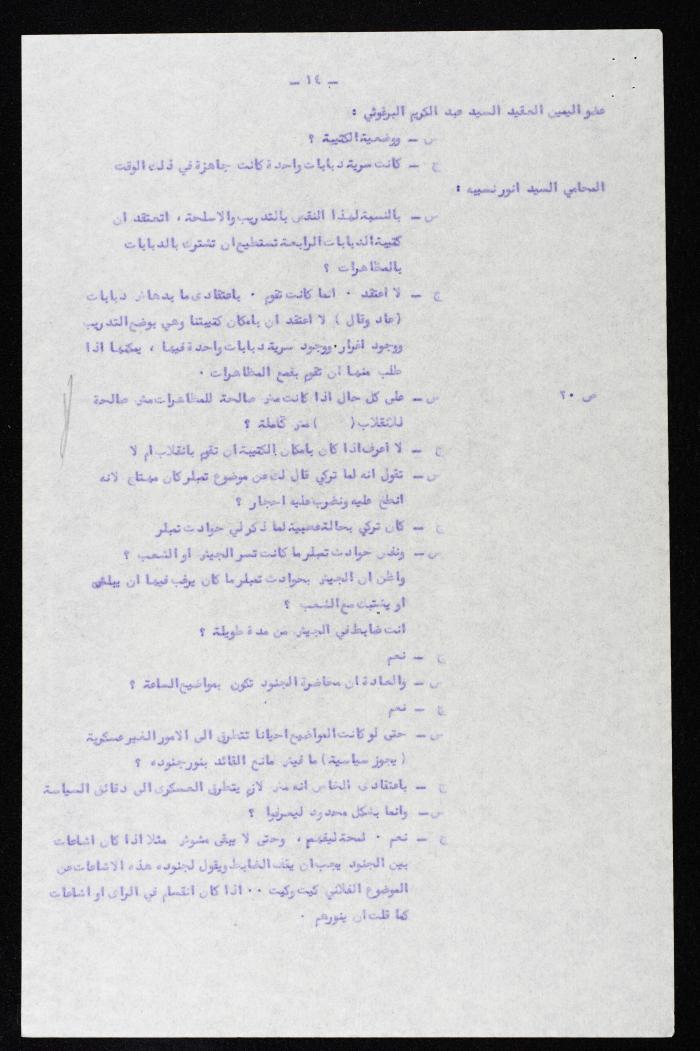 ـ ١٤ ـ
عضو اليمين العقيد السيد عبد الكريم البرغوثي :
س ـ ووضعية الكتيبة ؟
ج ـ كانت سرية دبابات واحدة كانت جاهزة في ذلك الوقت
المحامي السيد انور نسيبه :
س ـ بالنسبة لهذا النقص بالتدريب والاسلحة ، اتعتقد ان
كتيبة الدبابات الرابعة تستطيع ان تشترك بالدبابات
بالمظاهرات ؟
ج ـ لا اعتقد ٠ انما كانت تقوم ٠ باعتقادى ما بدهاش دبابات
(عاد وقال ) لا اعتقد ان بامكان كتيبتنا وهي بوضع التدريب
ووجود اغرار ٠ ووجود سرية دبابات واحدة فيها ، يمكنها اذا
طلب منها ان تقوم بقمع المظاهرات ٠
ص ٢٠
س ـ على كل حال اذا كانت مش صالحة للمظاهرات مش صالحة
للانقلاب ( ) مش كاملة ؟
ج ـ لا اعرف اذا كان بامكان الكتيبة ان تقوم بانقلاب ام لا
س ـ تقول انه لما تركي قال لك عن موضوع تمبلر كان مهتاج لانه
انطخ عليه ونضرب عليه احجار ؟
ج ـ كان تركي بحالة عصبية لما ذكر لي حوادث تمبلر
س ـ ونفس حوادث تمبلر ما كانت تسر الجيش او الشعب ؟
واظن ان الجيش بحوادث تمبلر ما كان يرغب فيها ان يبطش
او يشتبك مع الشعب ؟
انت ضابط في الجيش من مدة طويلة ؟
ج ـ نعم
س ـ والعادة ان محاضرة الجنود تكون بمواضيع الساعة ؟
ج ـ نعم
س ـ حتى لو كانت المواضيع احيانا تتطرق الى الامور الغير عسكرية
( يجوز سياسية ) ما فيش مانع القائد ينور جنوده ؟
ج ـ باعتقادى الخاص انه مش لازم يتطرق العسكرى الى دقائق السياسة
س ـ وانما بشكل محدود ليعرفوا ؟
ج ـ نعم ٠ لمحة ليفهم ، وحتى لا يبقى مشوش مثلا اذا كان اشاعات
بين الجنود يجب ان يقف الضابط ويقول لجنوده هذه الاشاعات عن
الموضوع الفلاني كيت وكيت ٠٠ اذا كان انقسام في الراى او اشاعات
كما قلت ان ينورهم ٠